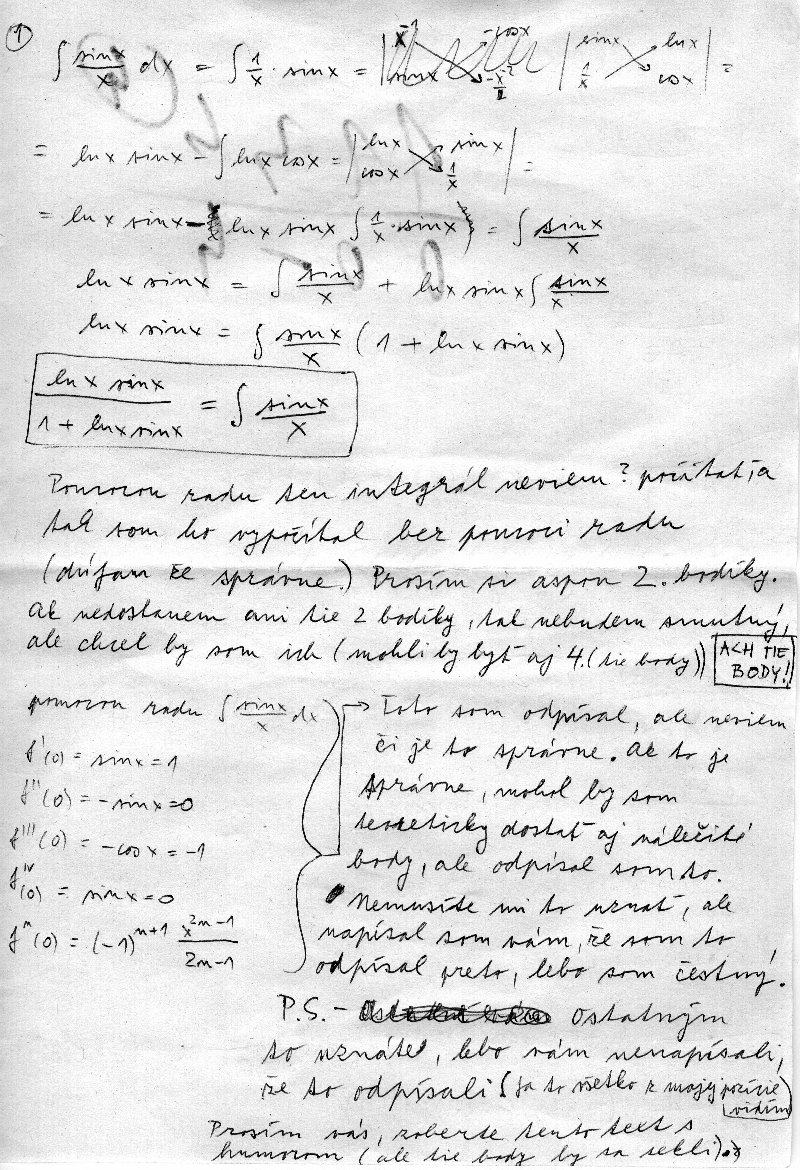 1
∫ sinx/x dx = ∫ 1/x · sinx = | | sinx lnx 1/x cosx | =
= lnx sinx - ∫ lnx cosx = | lnx sinx cosx 1/x | =
= lnx sinx - lnx sinx ∫ 1/x · sinx = ∫ sinx/x
lnx sinx = ∫ sinx/x + lnx sinx ∫ sinx/x
lnx sinx = ∫ sinx/x (1 + lnx sinx)
lnx sinx / 1 + lnx sinx = ∫ sinx/x
Pomocou radu ten integrál neviem? počítať, a
tak som ho vypočítal bez pomoci radu
(dúfam že správne.) Prosím si aspon 2. bodíky.
Ak nedostanem ani tie 2 bodíky, tak nebudem smutný,
ale chcel by som ich (mohli by byť aj 4. (tie body))
ACH TIE
BODY!
pomocou radu ∫ sinx/x dx
f'(0) = sinx = 1
f''(0) = -sinx = 0
f'''(0) = -cosx = -1
f^IV(0) = sinx = 0
f^n(0) = (-1)^n+1 x^2n-1 / 2n-1
Toto som odpísal, ale neviem
či je to správne. Ak to je
správne, mohol by som
teoreticky dostať aj náležité
body, ale odpísal som to.
Nemusíte mi to uznať, ale
napísal som vám, že som to
odpísal preto, lebo som čestný.
P.S. - ostatným
to uznáte, lebo vám nenapísali,
že to odpísali (Ja to všetko z mojej pozície
vidím)
Prosím vás, zoberte tento text s
humorom (ale tie body by sa zešli).